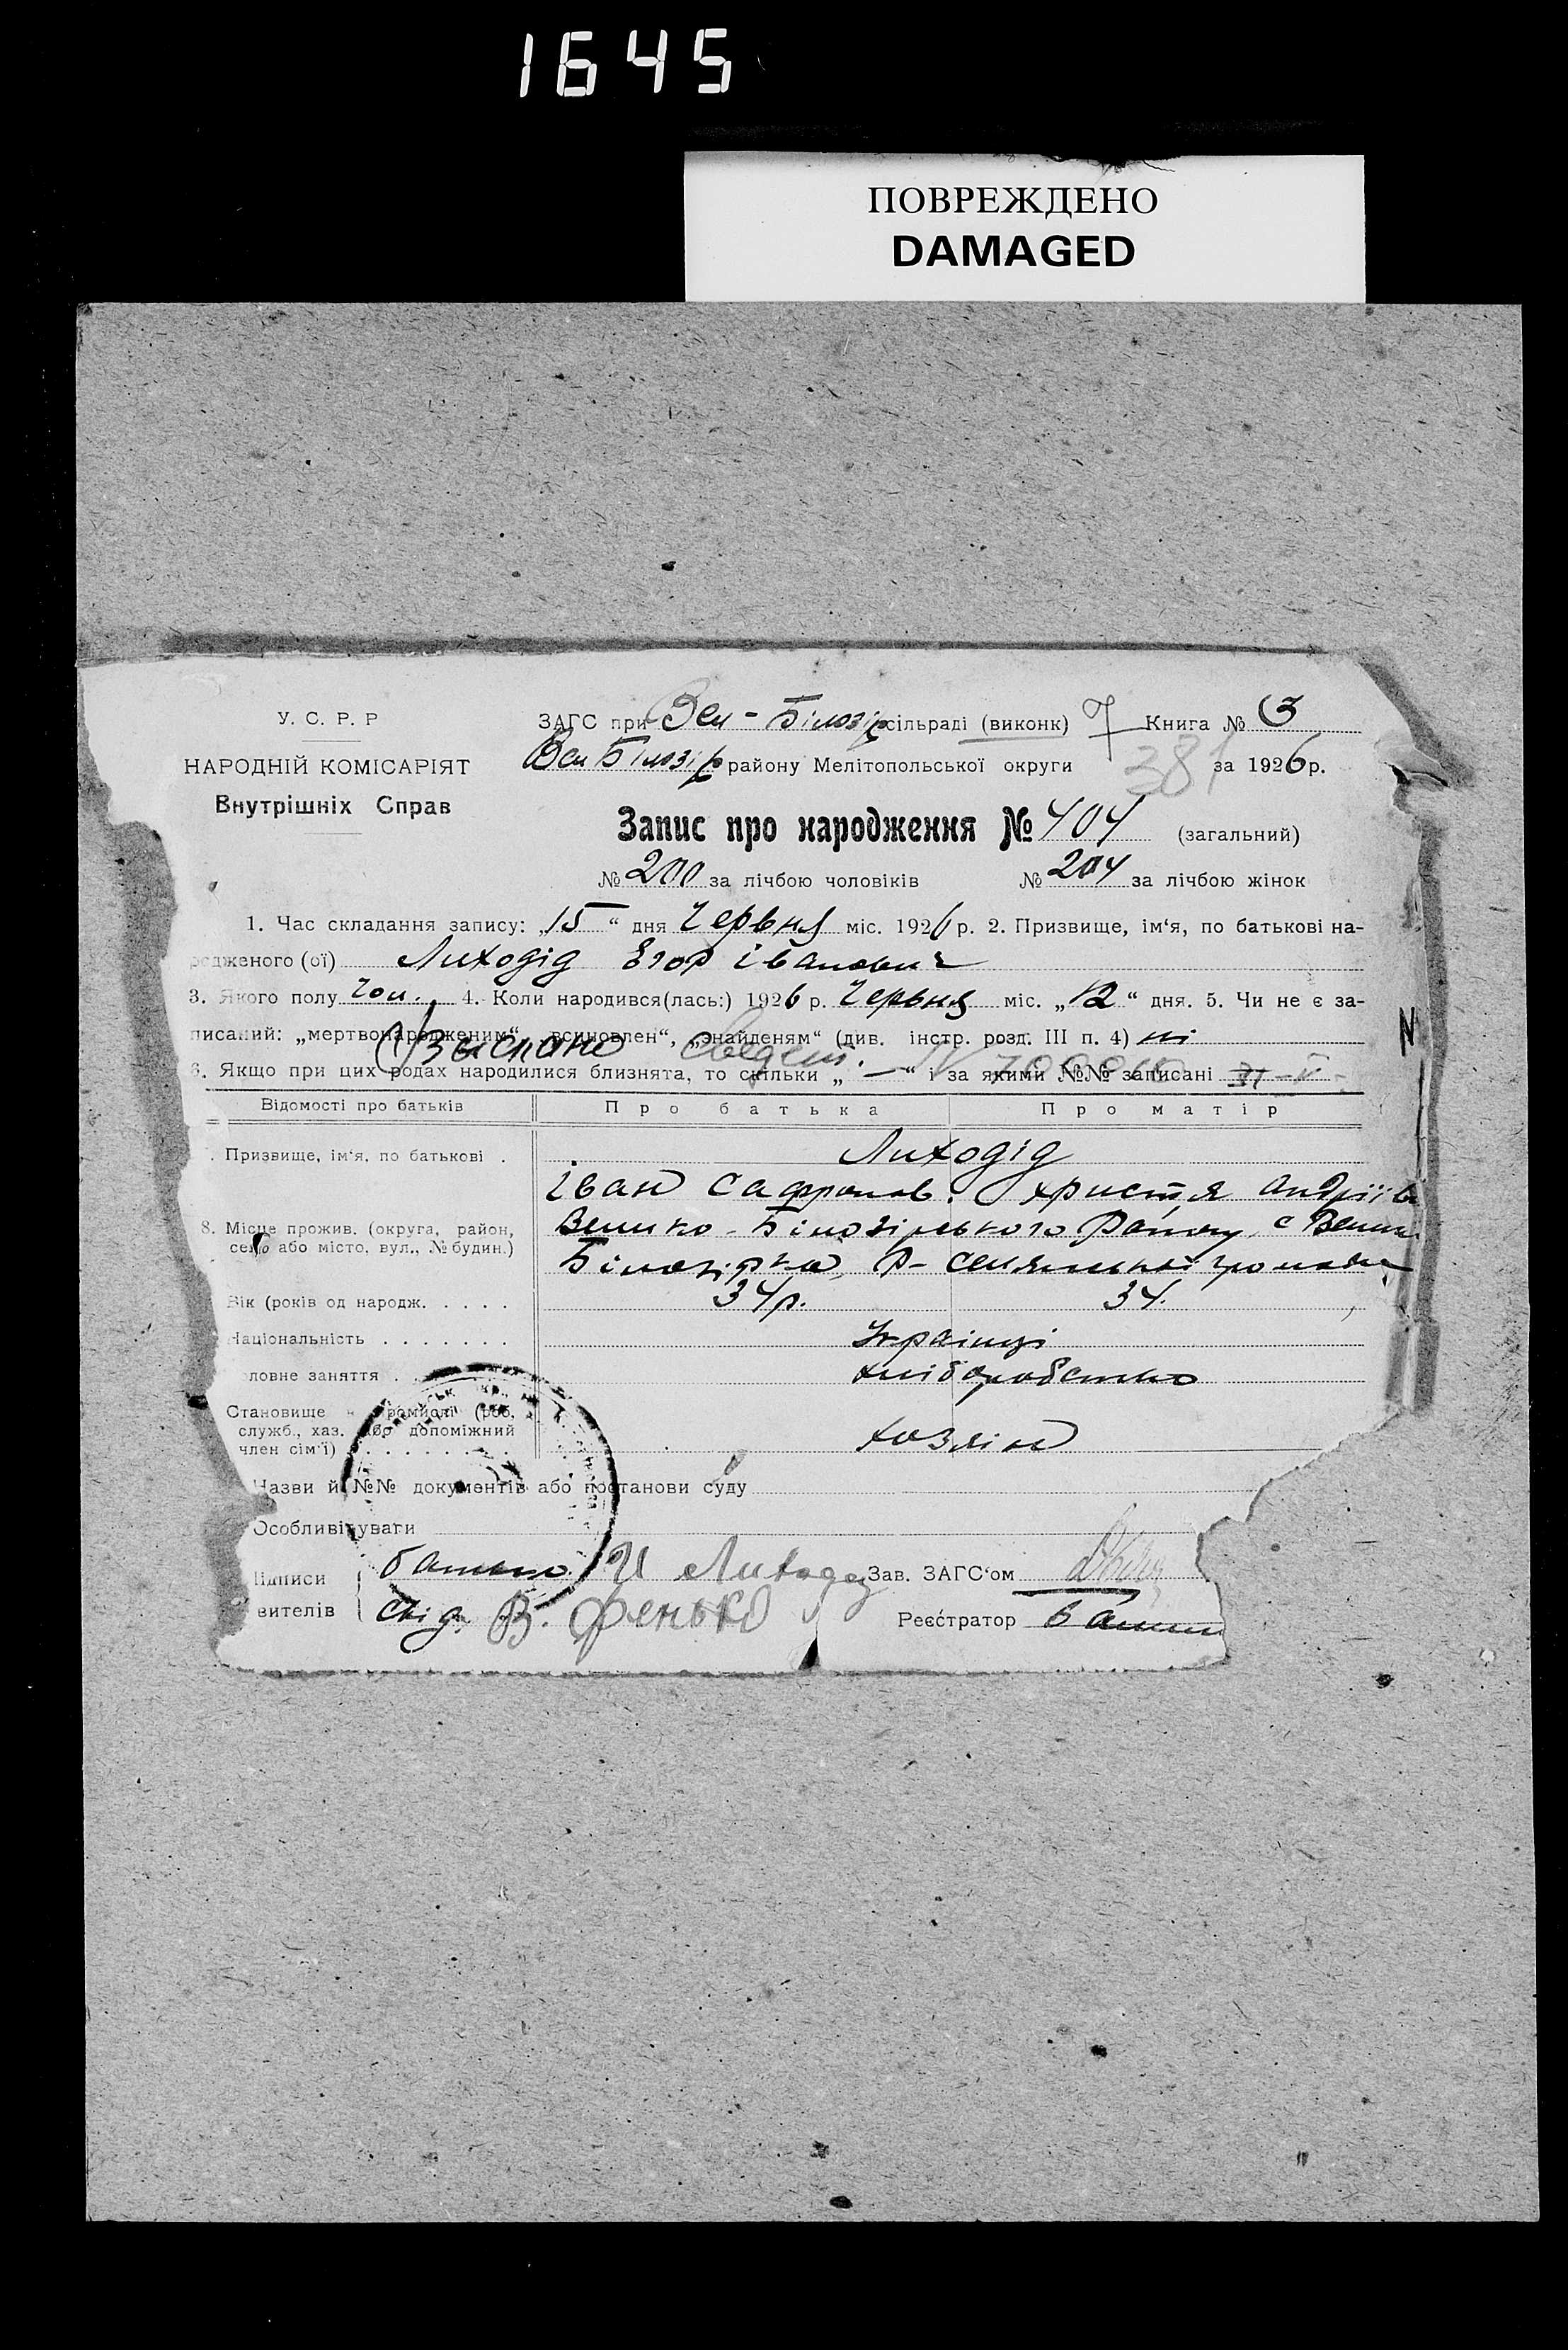 1645
ПОВРЕЖДЕНО
DAMAGED
У. С. Р. Р
НАРОДНІЙ КОМІСАРІЯТ
Внутрішніх Справ
ЗАГС при Вел-Білозір сільраді (виконк) Книга № 3
Вел Білозір району Мелітопольської округи 381 за 1926 р.
Запис про народження № 404 (загальний)
№ 200 за лічбою чоловіків № 204 за лічбою жінок
1. Час складання запису: „15“ дня Червня міс. 1926 р. 2. Призвище, ім‘я, по батькові на-
родженого (ої) Лиходід Егор Іванович
3. Якого полу чол. 4. Коли народився(лась:) 1926 р. Червня міс. „12“ дня. 5. Чи не є за-
писаний: „мертвонародженим“, „всиновлен“, „знайденям“ (див. інстр. розд. III п. 4) ні
6. Якщо при цих родах народилися близнята, то скільки „—“ і за якими №№ записані
Відомості про батьків Про батька Про матір
Призвище, ім‘я, по батькові . Лиходід
Іван Сафронов. Христя Андріїв
8. Місце прожив. (округа, район, Велико-Білозірського Району, с Велик
село або місто, вул., № будин.) Білозірка,
Вік (років од народж. . . . . 34р. 34.
Національність . . . . . . . Українці
ловне заняття . . хліборобство
Становище в промислі (роб.
служб., хаз. або допоміжний
член сім‘ї) . . . . . . . . хозяїн
Назви й №№ документів або постанови суду
Особливі уваги
Підписи батько И Лиходед Зав. ЗАГС‘ом
вителів свід. В. Фенько Реєстратор